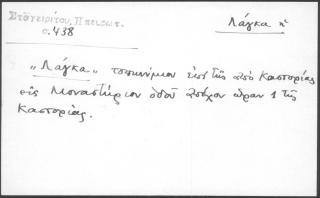 Στουγιρίτου, Ηπειρωτ.
σ. 438
Λάγκα η
"Λάγκα" τοπωνύμιον επί της από Καστορίας
εις Μοναστήριον οδού απέχον ώραν 1 της
Καστορίας.